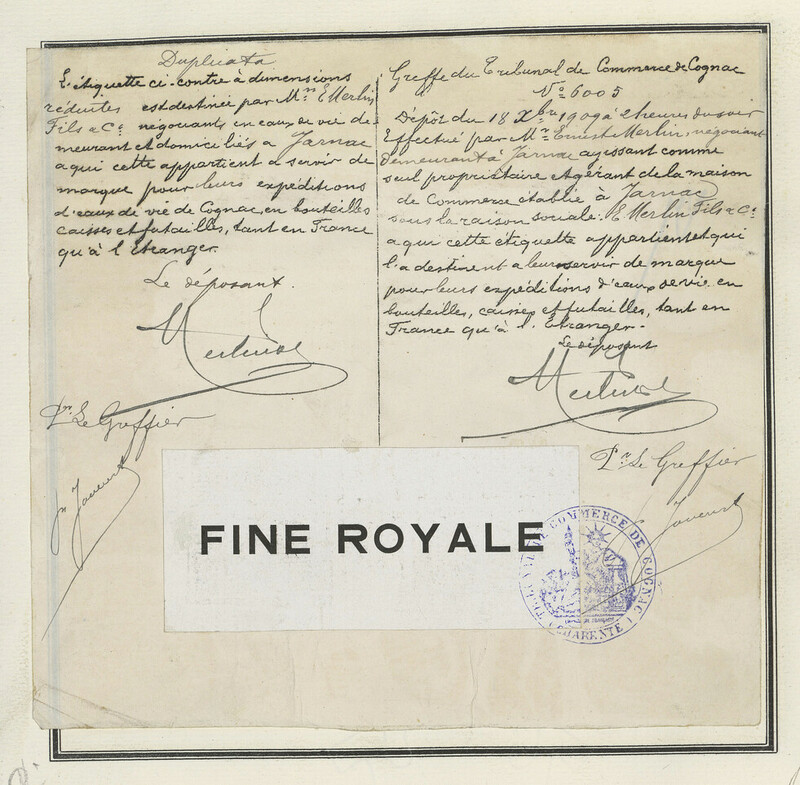 Duplicata
L'étiquette ci-contre à dimensions
réduites est destinée par Mrs E Merlin
Fils & Cie négociants en eaux de vie de-
meurant et domiciliés à Jarnac
a qui cette appartient a servir de
marque pour leurs expéditions
d'eaux de vie de Cognac, en bouteilles
caisses et futailles, tant en France
qu'à l'Étranger.
Le déposant.
Pr. Le Greffier
Greffe du Tribunal de Commerce de Cognac
No 6005
Dépôt du 18 Xbre 1909 à 2 heures du soir
Effectué par Mr Ernest Merlin, négociant
demeurant à Jarnac agissant comme
seul propriétaire et gérant de la maison
de Commerce établie à Jarnac
sous la raison sociale: E Merlin Fils & Cie
a qui cette étiquette appartient et qui
l'a destinent a leur servir de marque
pour leurs expéditions d'eaux de vie en
bouteilles, caisses et futailles, tant en
France qu'à l'Étranger.
Le déposant
Pr Le Greffier
FINE ROYALE
TRIBUNAL DE COMMERCE DE COGNAC
(CHARENTE)